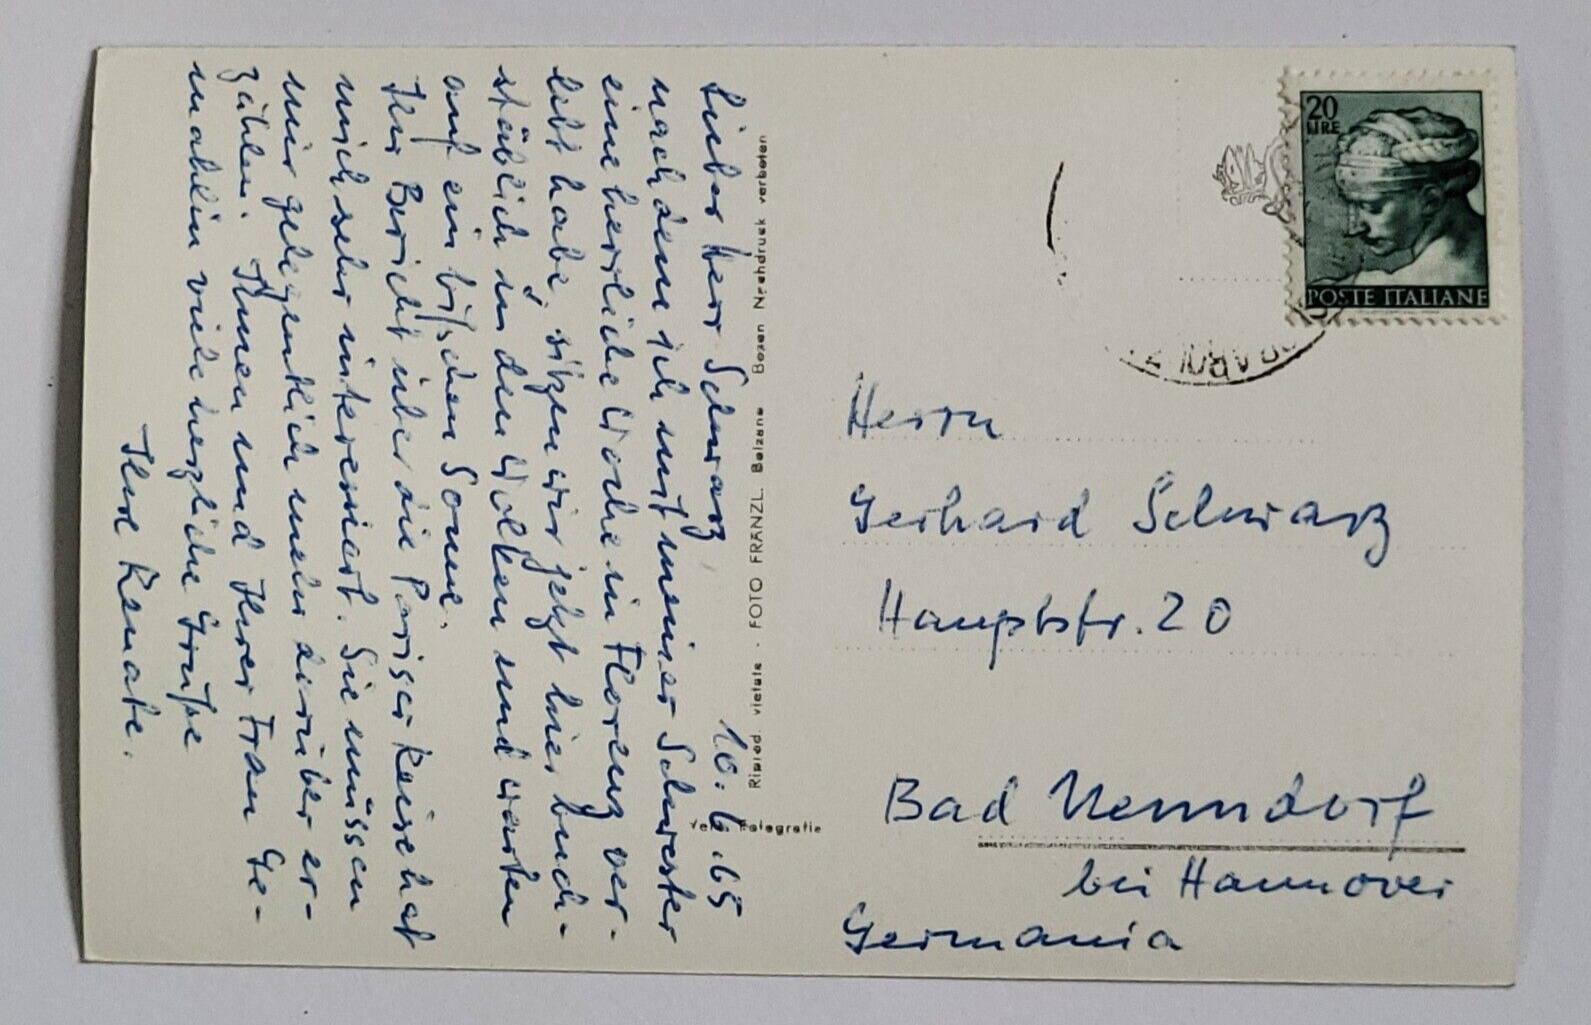 10.6.65
Lieber Herr Schwarz,
nachdem ich mit meiner Schwester
eine herrliche Woche in Florenz ver-
lebt habe, sitzen wir jetzt hier buch-
stäblich in den Wolken und warten
auf ein bißchen Sonne.
Ihr Bericht über die Pariser Reise hat
mich sehr interessiert. Sie müssen
mir gelegentlich mehr darüber er-
zählen. Ihnen und Ihrer Frau Ge-
mahlin viele herzliche Grüße
Ihre Renate.
Riprod. vietata - FOTO FRÄNZL. Bolzano Bozen Nachdruck verboten
Vera Fotografie
20
LIRE
POSTE ITALIANE
Herrn
Gerhard Schwarz
Hauptstr. 20
Bad Nenndorf
bei Hannover
Germania